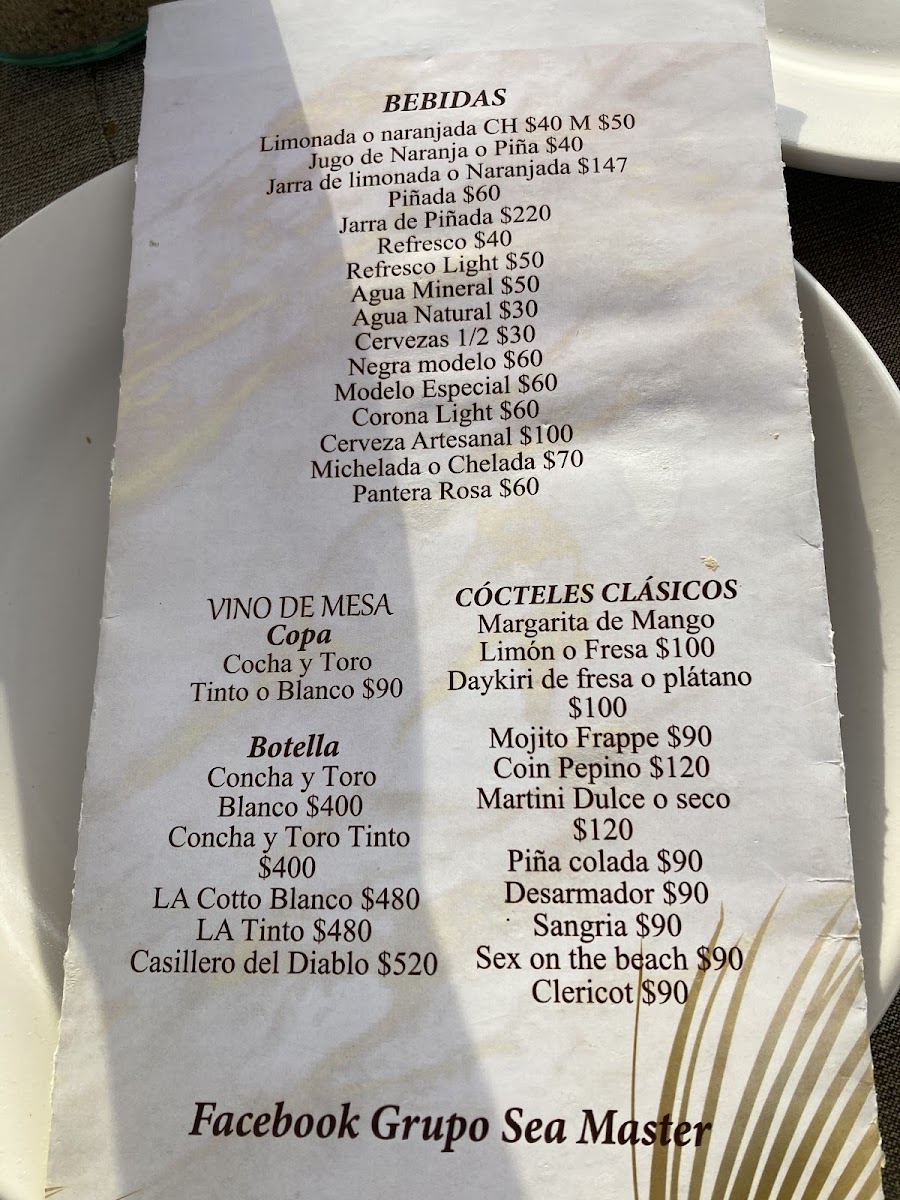 BEBIDAS
Limonada o naranjada CH $40 M $50
Jugo de Naranja o Piña $40
Jarra de limonada o Naranjada $147
Piñada $60
Jarra de Piñada $220
Refresco $40
Refresco Light $50
Agua Mineral $50
Agua Natural $30
Cervezas 1/2 $30
Negra modelo $60
Modelo Especial $60
Corona Light $60
Cerveza Artesanal $100
Michelada o Chelada $70
Pantera Rosa $60
VINO DE MESA
Copa
Cocha y Toro
Tinto o Blanco $90
Botella
Concha y Toro
Blanco $400
Concha y Toro Tinto
$400
LA Cotto Blanco $480
LA Tinto $480
Casillero del Diablo $520
CÓCTELES CLÁSICOS
Margarita de Mango
Limón o Fresa $100
Daykiri de fresa o plátano
$100
Mojito Frappe $90
Coin Pepino $120
Martini Dulce o seco
$120
Piña colada $90
Desarmador $90
Sangria $90
Sex on the beach $90
Clericot $90
Facebook Grupo Sea Master